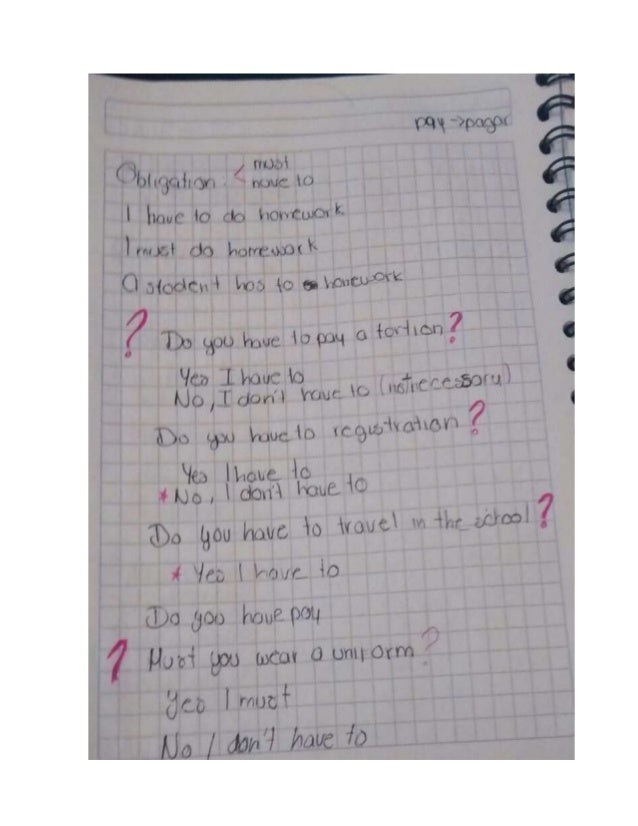 pay → pagar
Obligation: < must
have to
I have to do homework
I must do homework
A student has to homework
? Do you have to pay a tortion?
Yes I have to
No, I don't have to (not necessary)
Do you have to registration?
Yes I have to
* No, I don't have to
Do you have to travel in the school?
* Yes I have to
Do you have pay
? Must you wear a uniform?
Yes I must
No I don't have to